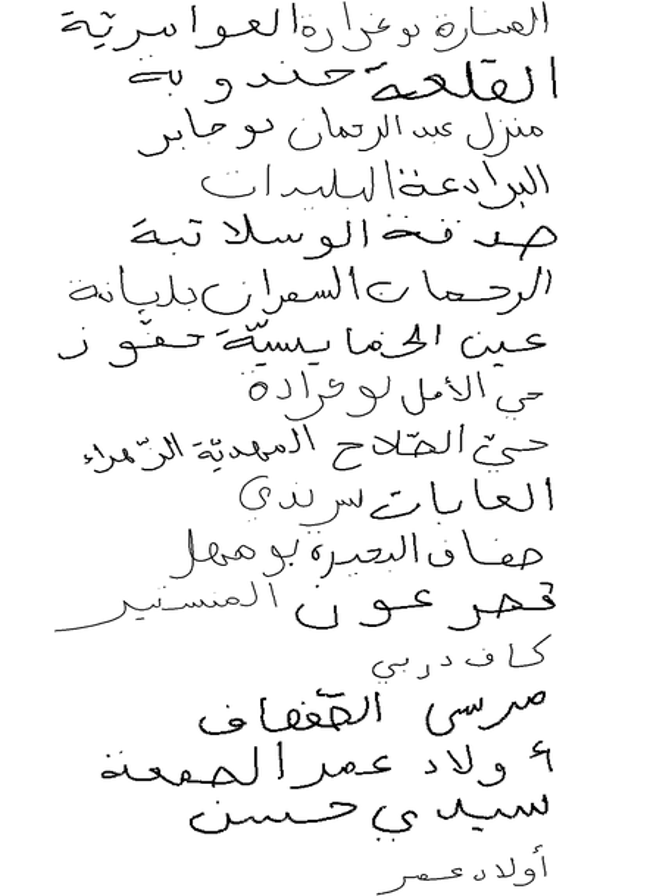 المنارة بوغرارة العوامرية
القلعة حندوبة
منزل عبد الرحمان بو جابر
البرادعة البليدات
صدقة الوسلاتية
الرحمان السعران بليانة
عين الخمايسيّة حفّوز
حي الأمل بوغرادة
حيّ الفلاح المهديّة الزّهراء
الغابات سرندي
ضفاف البحيرة بو مهل
قصر عون المنستير
كاف دربي
مرسى القفاف
أولاد عمر الصمعة
سيدي حسن
أولاد عمر